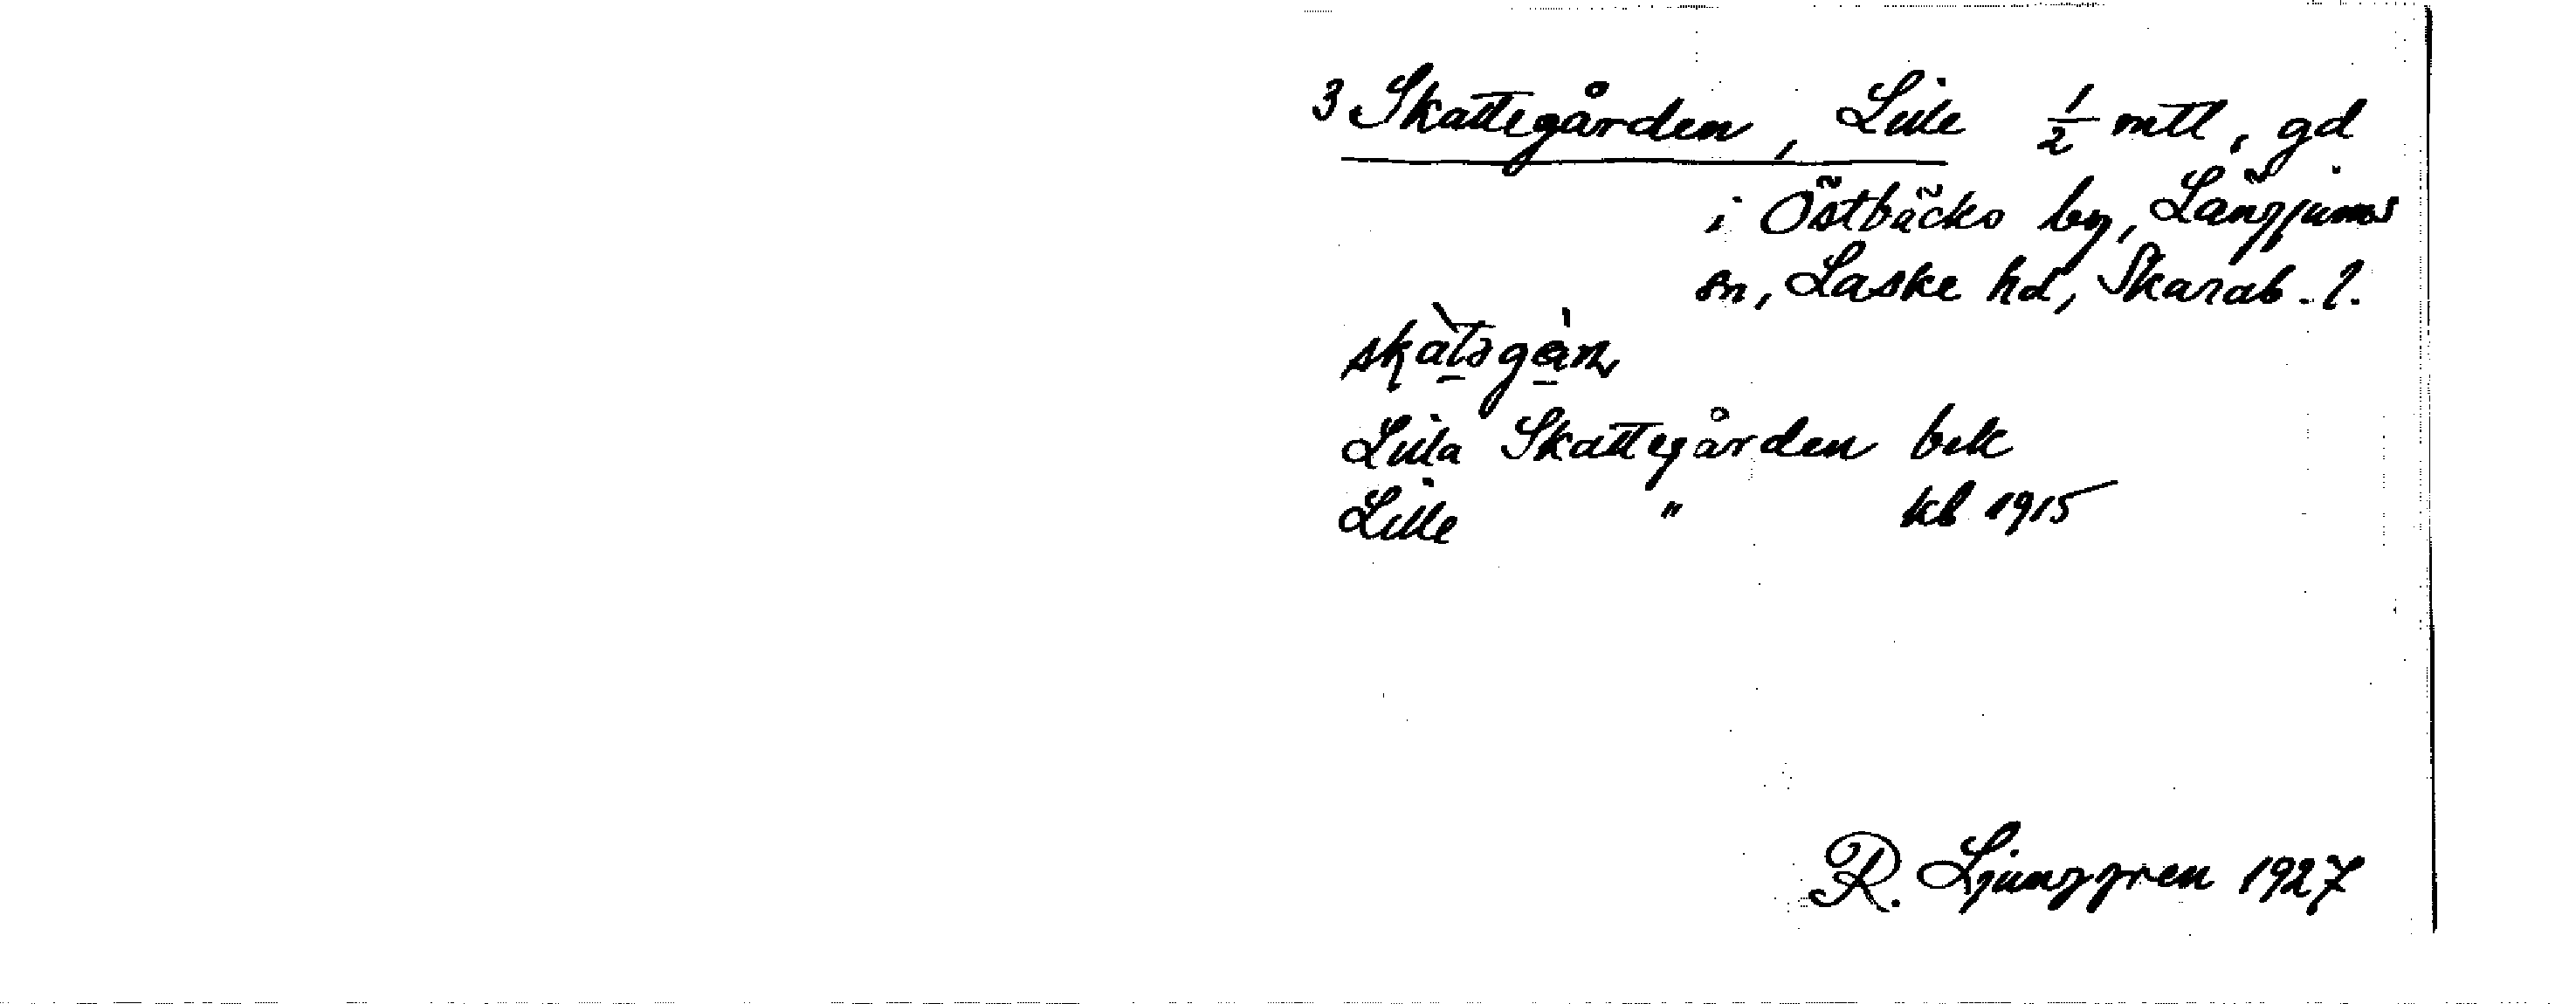 3 Skattegården, Lille 1/2 mtl, gd
i Östbäcks by, Långjums
sn, Laske hd, Skarab. l.
Lilla Skattegården bek
Lille " kb 1915
R. Ljunggren 1927